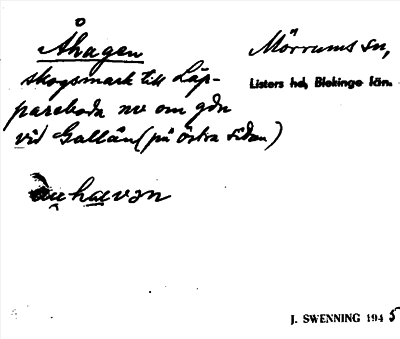 Åhagen
Mörrums sn,
Listers hd, Blekinge län.
skogsmark till Läp-
pareboda nv om gdn
vid Gallån (på östra sidan)
hagvən
J. SWENNING 1945